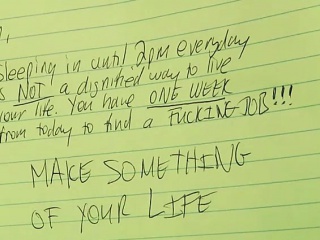 Sleeping in until 2pm everyday
is NOT a dignified way to live
your life. You have ONE WEEK
from today to find a FUCKING JOB!!!
MAKE SOMETHING
OF YOUR LIFE